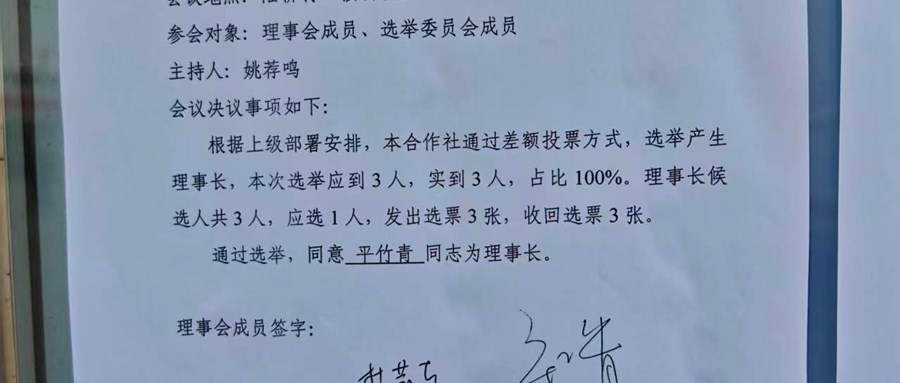 参会对象：理事会成员、选举委员会成员
主持人：姚荐鸣
会议决议事项如下：
根据上级部署安排，本合作社通过差额投票方式，选举产生
理事长，本次选举应到 3 人，实到 3 人，占比 100%。理事长候
选人共 3 人，应选 1 人，发出选票 3 张，收回选票 3 张。
通过选举，同意 平竹青 同志为理事长。
理事会成员签字：